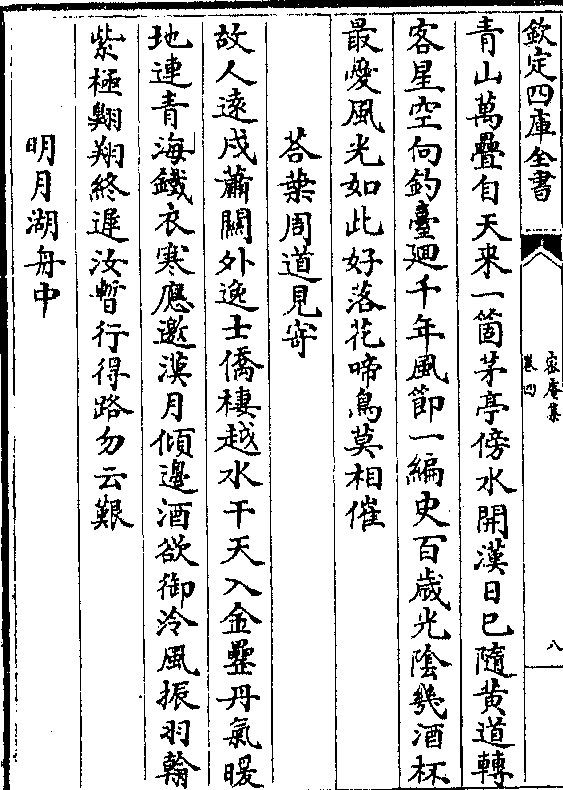 欽定四庫全書
密庵集
卷四
八
青山萬疊自天來一箇茅亭傍水開漢日已隨黄道轉
客星空向釣臺廻千年風節一編史百歲光隂幾酒杯
最愛風光如此好落花啼鳥莫相催
荅葉周道見寄
故人逺戍蕭關外逸士僑棲越水干天入金罍丹氣暖
地連青海鐵衣寒應邀漢月傾邊酒欲御泠風振羽翰
紫極翺翔終遲汝暫行得路勿云艱
明月湖舟中